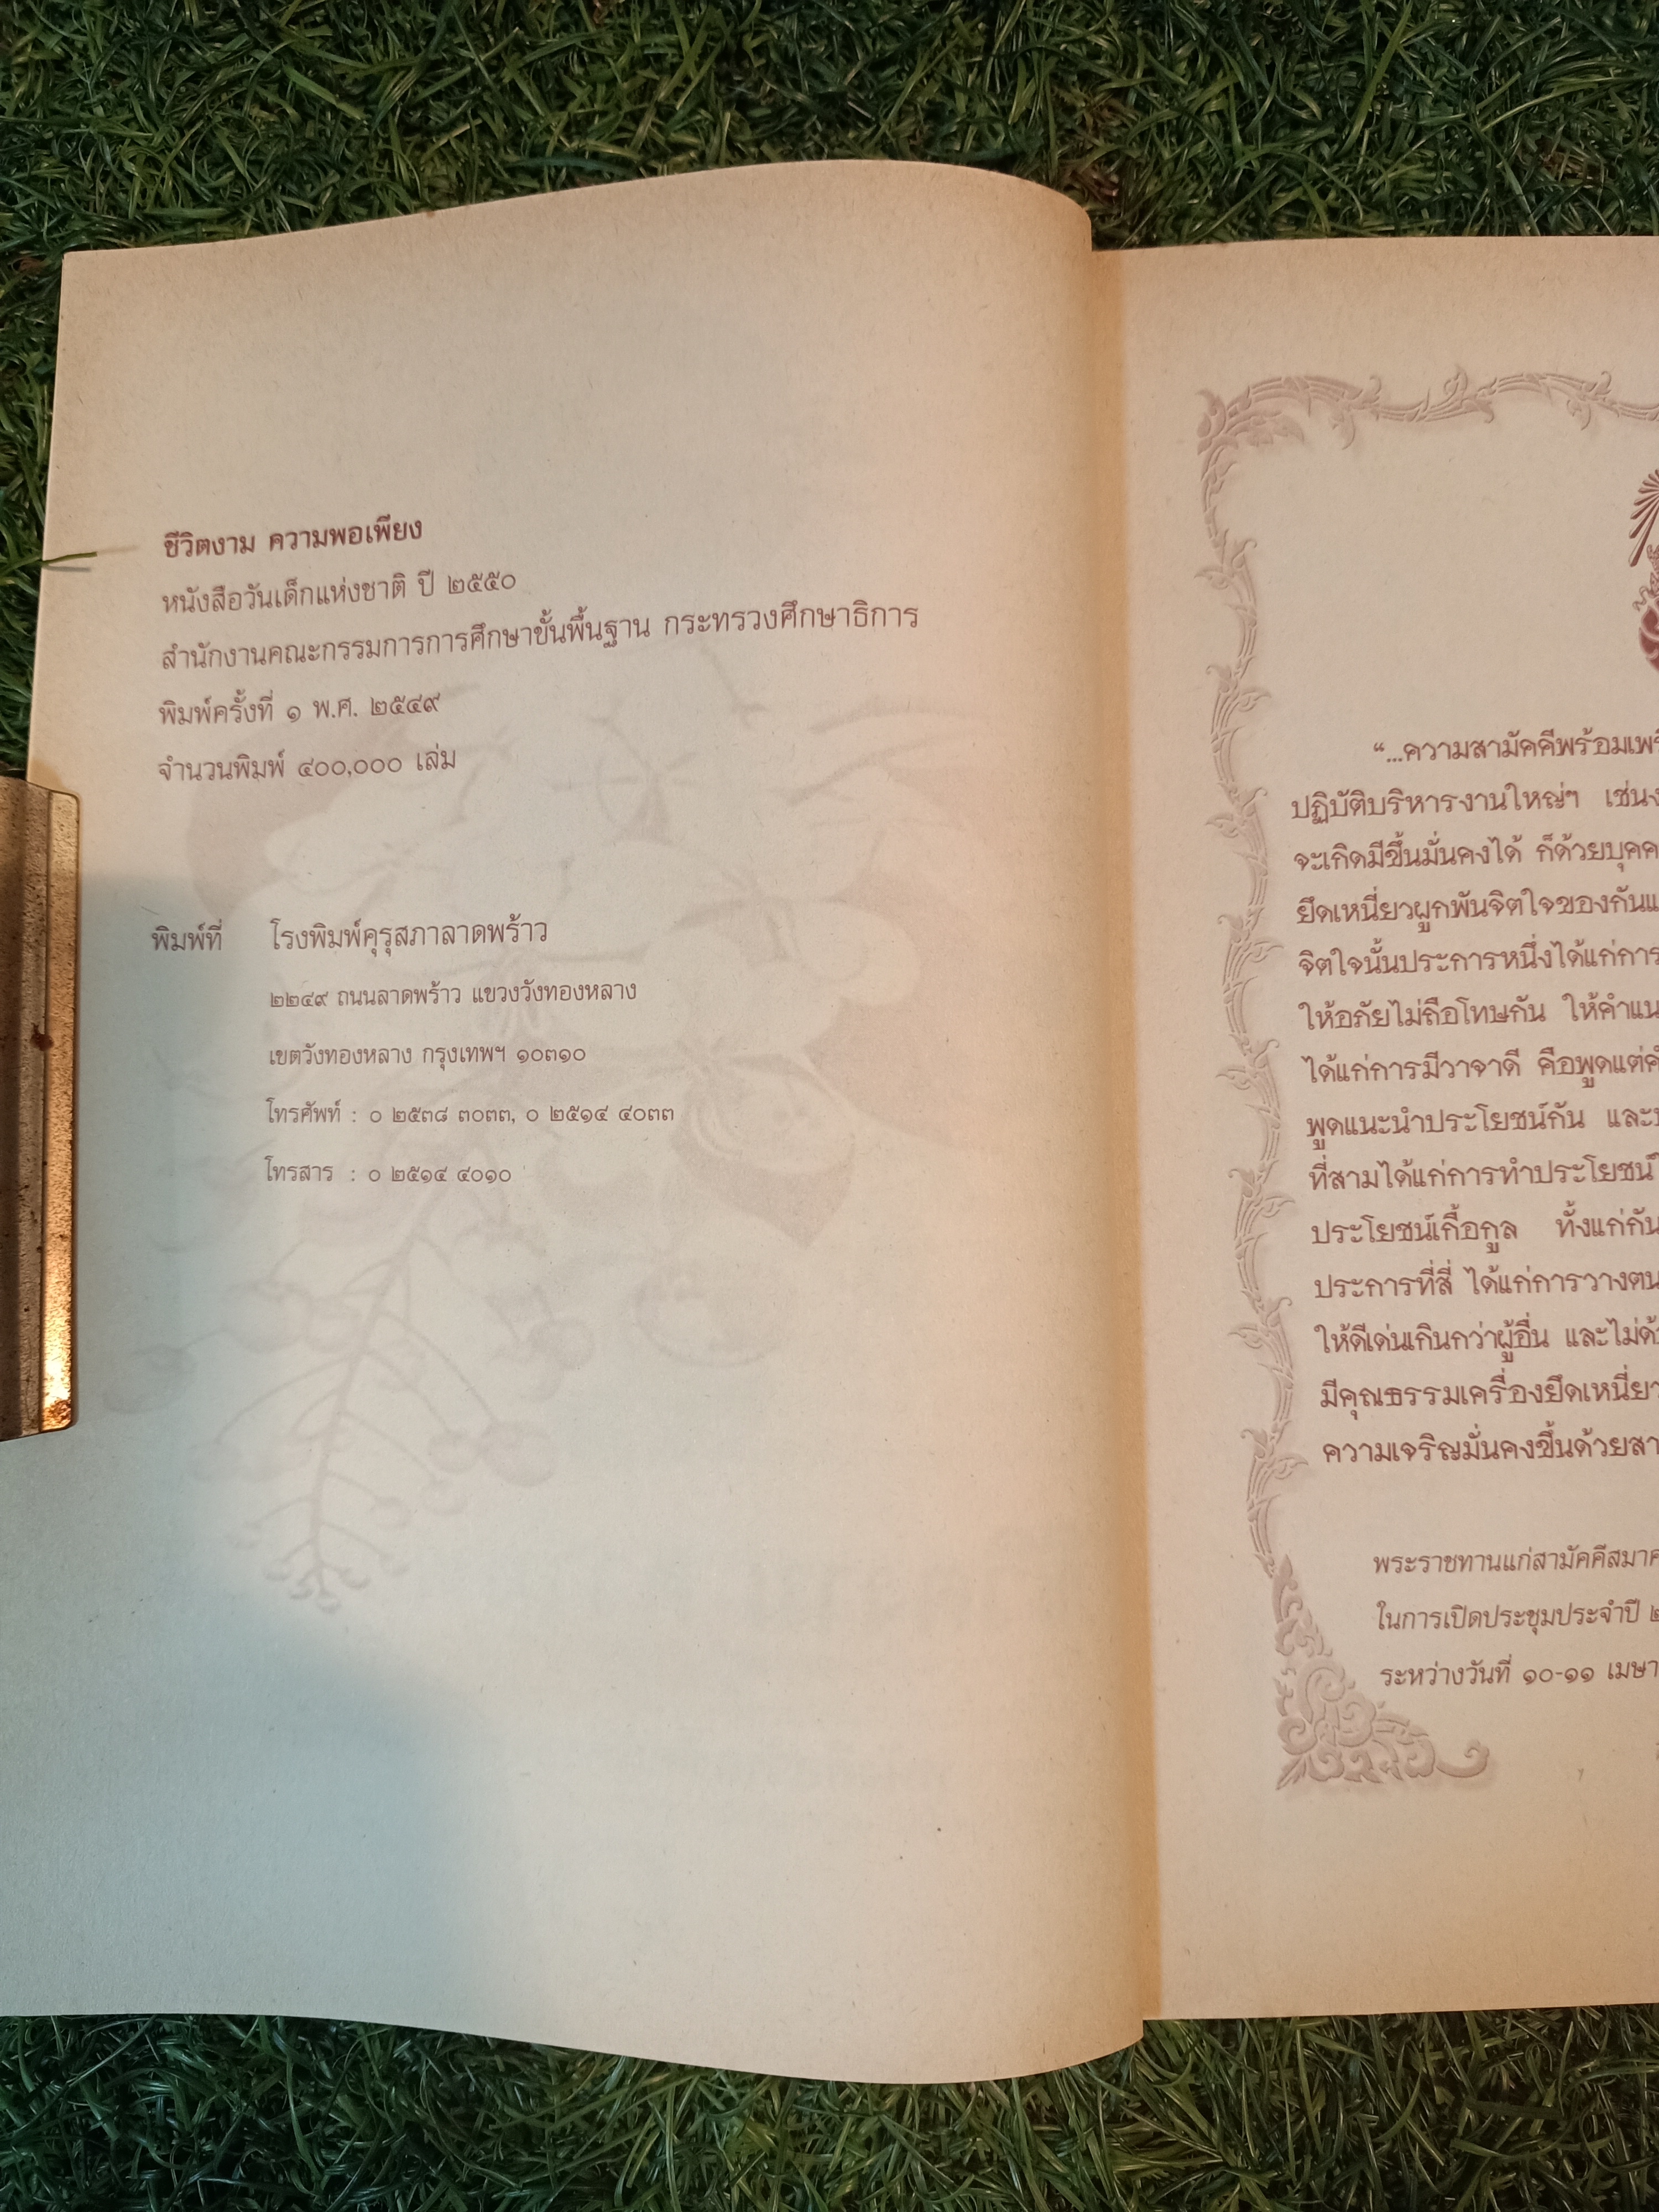 ชีวิตงาม ความพอเพียง
หนังสือวันเด็กแห่งชาติ ปี ๒๕๕๐
สำนักงานคณะกรรมการการศึกษาขั้นพื้นฐาน กระทรวงศึกษาธิการ
พิมพ์ครั้งที่ ๑ พ.ศ. ๒๕๔๙
จำนวนพิมพ์ ๔๐๐,๐๐๐ เล่ม
พิมพ์ที่ โรงพิมพ์คุรุสภาลาดพร้าว
๒๒๔๙ ถนนลาดพร้าว แขวงวังทองหลาง
เขตวังทองหลาง กรุงเทพฯ ๑๐๓๑๐
โทรศัพท์ : ๐ ๒๕๓๘ ๓๐๓๓, ๐ ๒๕๑๔ ๔๐๓๓
โทรสาร : ๐ ๒๕๑๔ ๔๐๑๐
“...ความสามัคคีพร้อมเพ
ปฏิบัติบริหารงานใหญ่ๆ เช่น
จะเกิดมีขึ้นมั่นคงได้ ก็ด้วยบุคค
ยึดเหนี่ยวผูกพันจิตใจของกัน
จิตใจนั้นประการหนึ่งได้แก่การ
ให้อภัยไม่ถือโทษกัน ให้คำแน
ได้แก่การมีวาจาดี คือพูดแต่
พูดแนะนำประโยชน์กัน และ
ที่สามได้แก่การทำประโยชน์
ประโยชน์เกื้อกูล ทั้งแก่กัน
ประการที่สี่ ได้แก่การวางตน
ให้ดีเด่นเกินกว่าผู้อื่น และไม่
มีคุณธรรมเครื่องยึดเหนี่ยว
ความเจริญมั่นคงขึ้นด้วยสา
พระราชทานแก่สามัคคีสมาค
ในการเปิดประชุมประจำปี ๒
ระหว่างวันที่ ๑๐-๑๑ เมษา